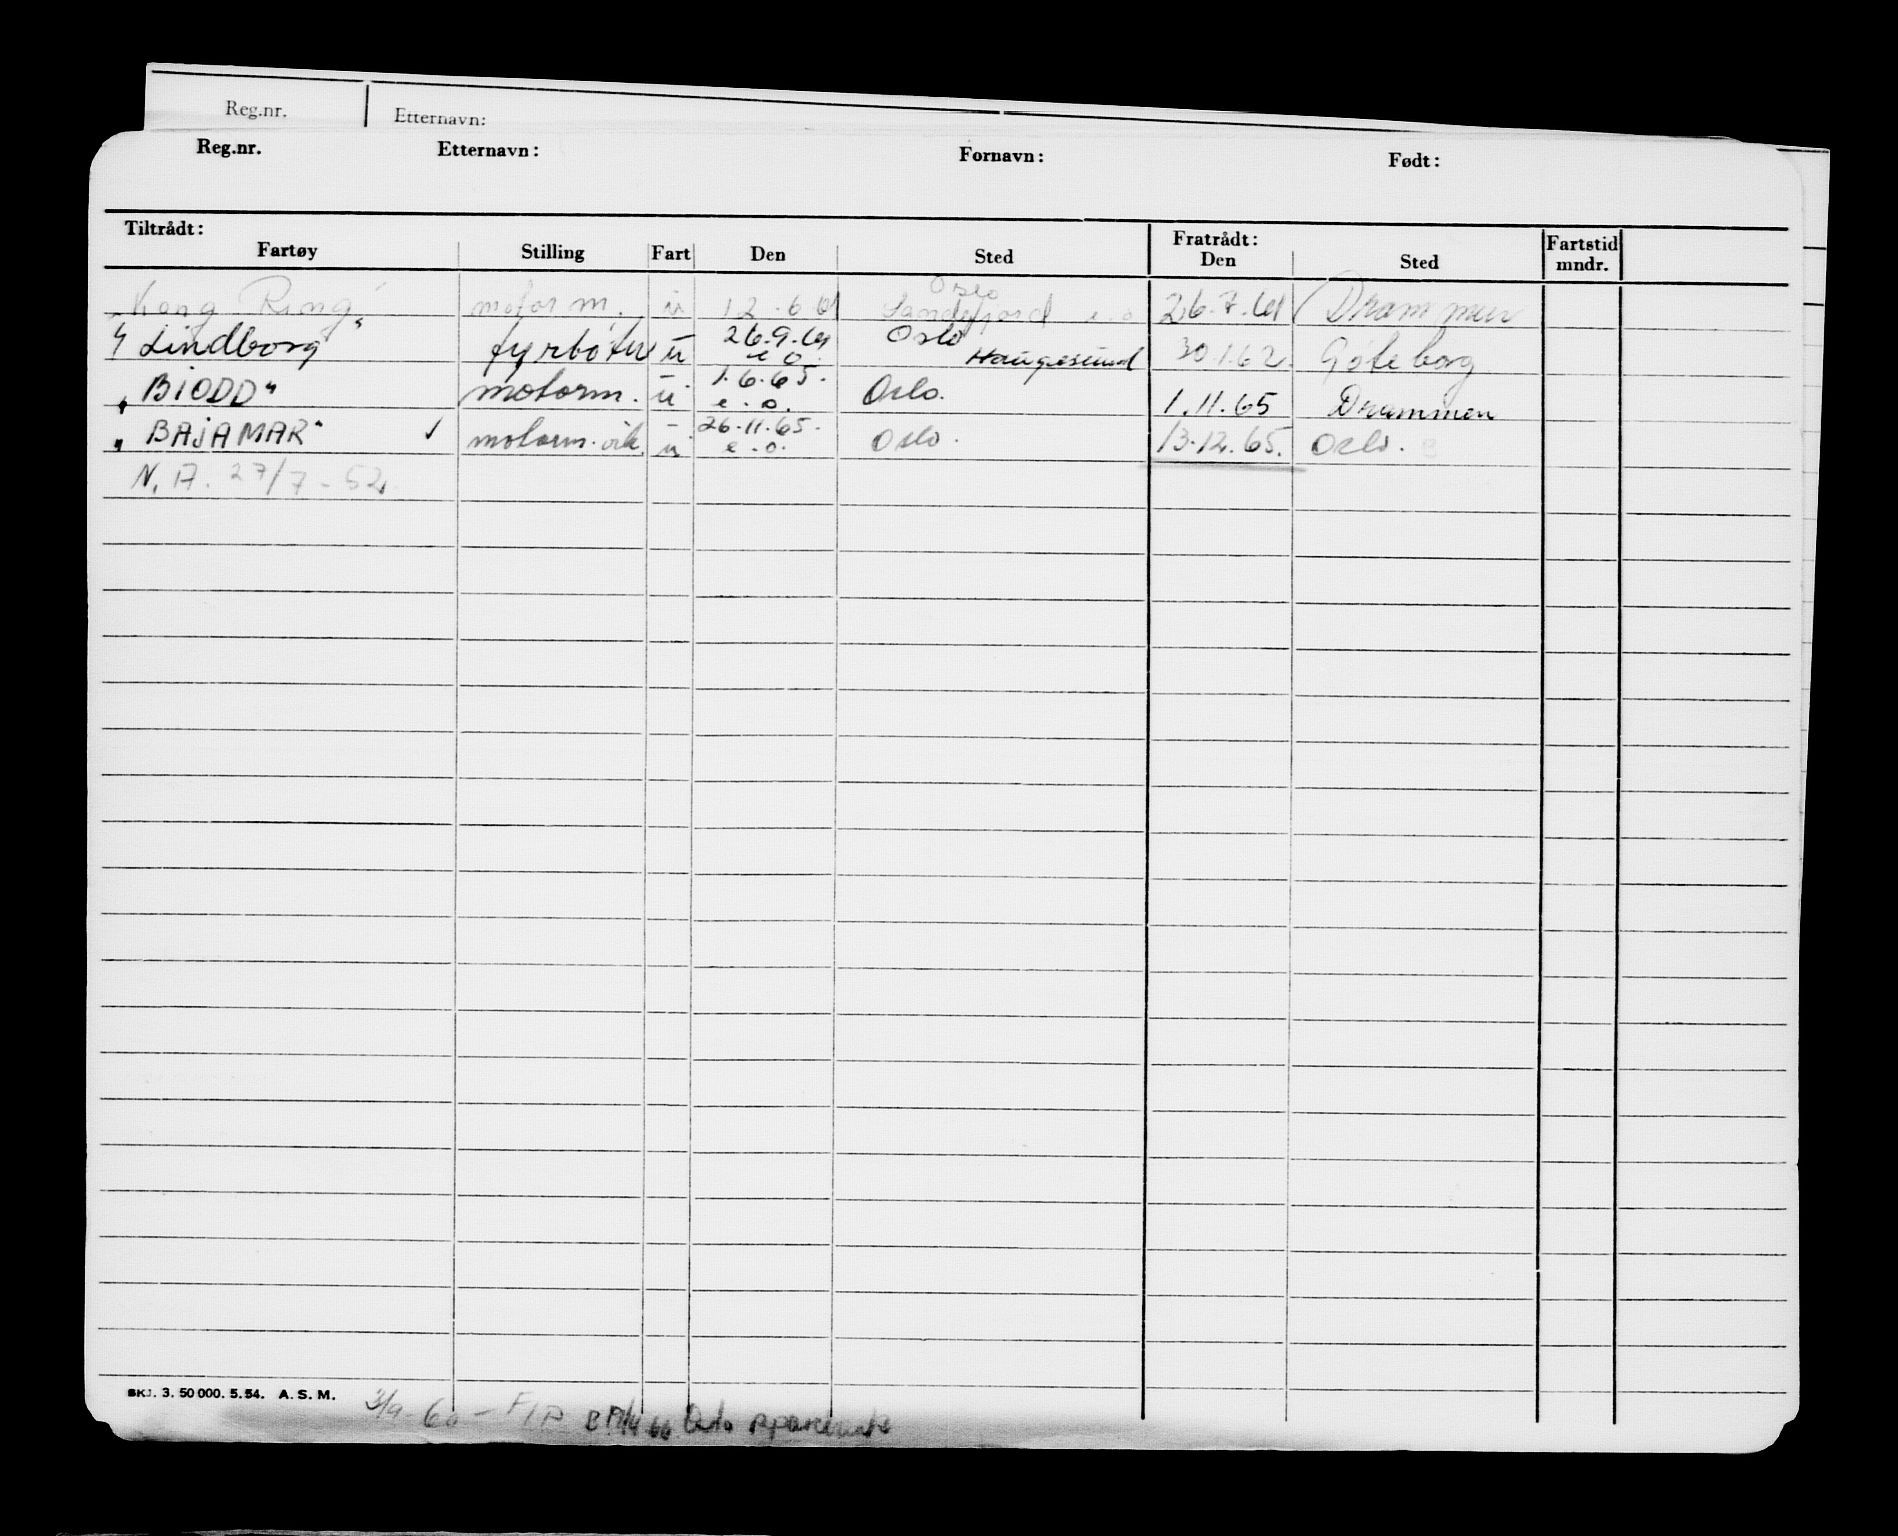 Reg.nr. Etternavn:
Reg.nr. Etternavn: Fornavn: Født:
Tiltrådt: Fratrådt: Fartstid
Fartøy Stilling Fart Den Sted Den Sted mndr.
Oslo
"Kong Ring" motorm. ū 12.6.61 Sandefjord e.o. 26.7.61 Drammen
"Lindborg" fyrbøter ū 26.9.61 Oslo
e.o. Haugesund 30.1.62. Göteborg
"BIODD" motorm. ū 1.6.65. Oslo. 1.11.65 Drammen
e.o.
"BAJAMAR" ✓ motorm. vik. ū 26.11.65. Oslo. 13.12.65. Oslo.
e.o.
N.A. 27/7-52
SKJ. 3. 50 000. 5.54. A. S. M.
3/9-60 - 66 Oslo